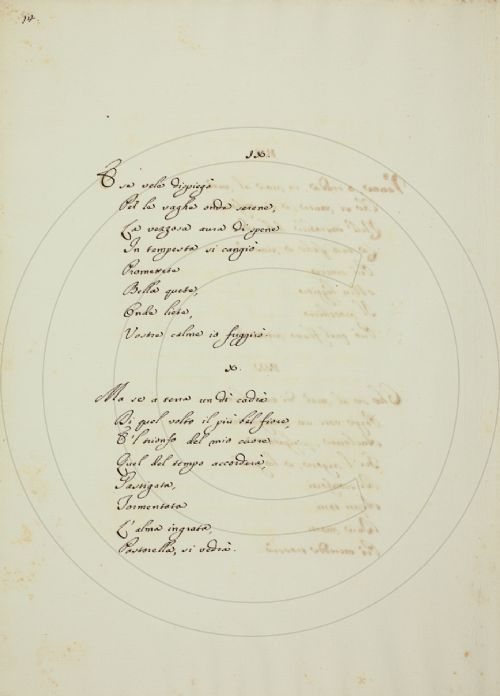 14
IX.
E se vele dispiegò
Per le vaghe onde serene,
La vezzosa aura di spene
In tempesta si cangiò
Promerete
Bella quete,
Onde liete,
Vostre calme io fuggirò.
X.
Ma se a terra un dì cadrà
Di quel volto il più bel fiore,
E 'l trionfo del mio cuore
Quel del tempo accorderà,
Gastigata,
Tormentata
L'alma ingrata,
Pastorella, si vedrà.